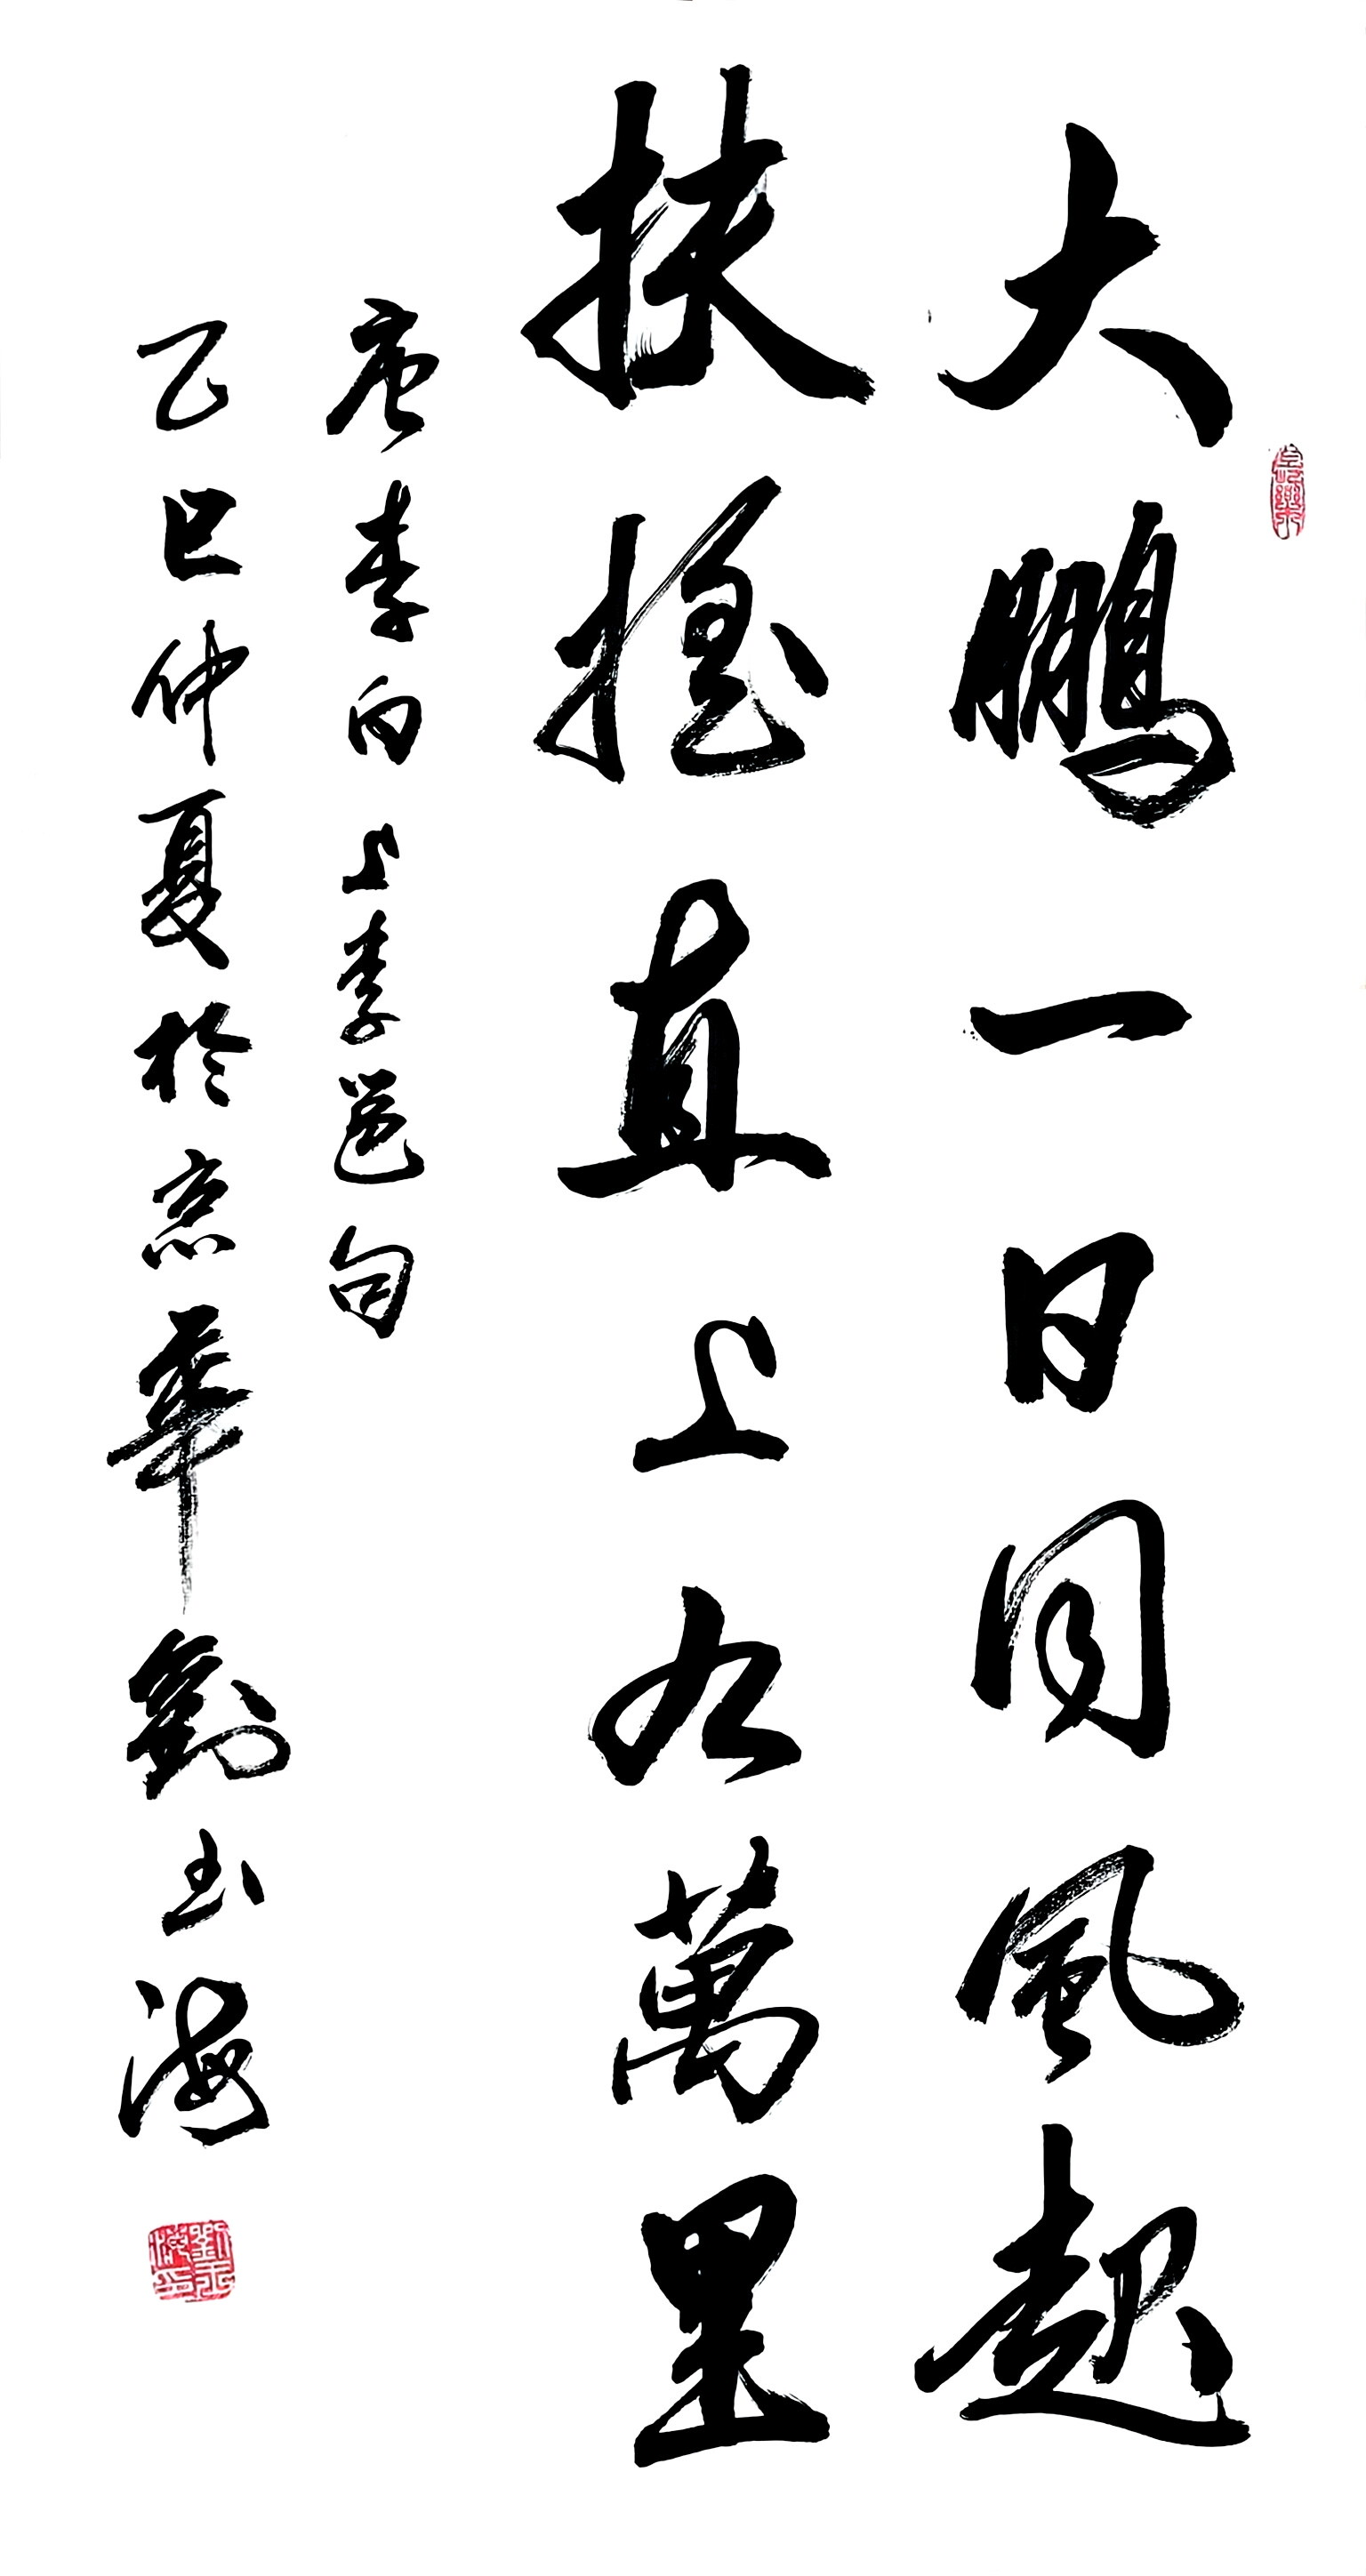 大鵬一日同風起
扶摇直上九萬里
唐李白上李邕句
乙巳仲夏於京華劉玉海